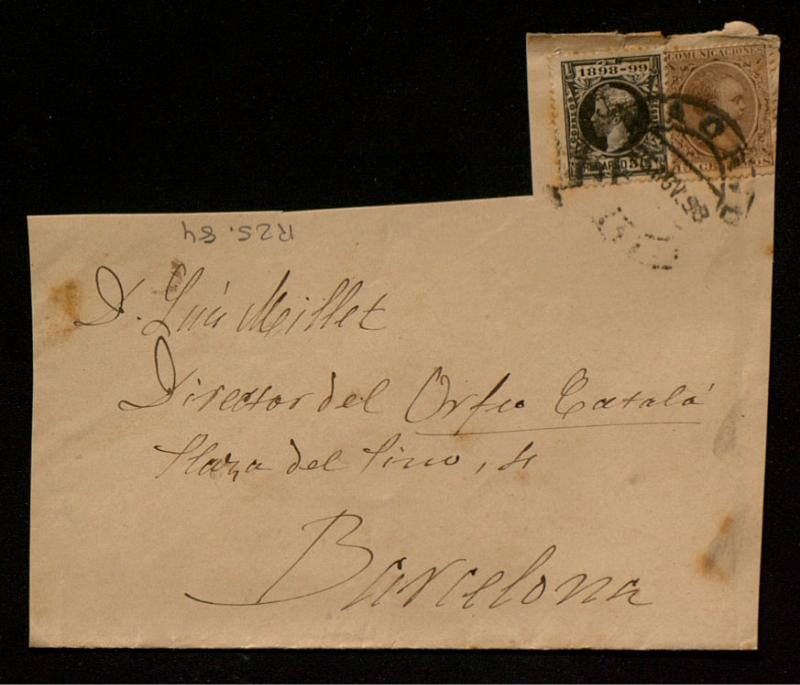 1898-99
COMUNICACIONES
CORREOS
NOV. 98
R25.84
D. Lluís Millet
Director del Orfeo Català
Plaza del Pino, 4
Barcelona